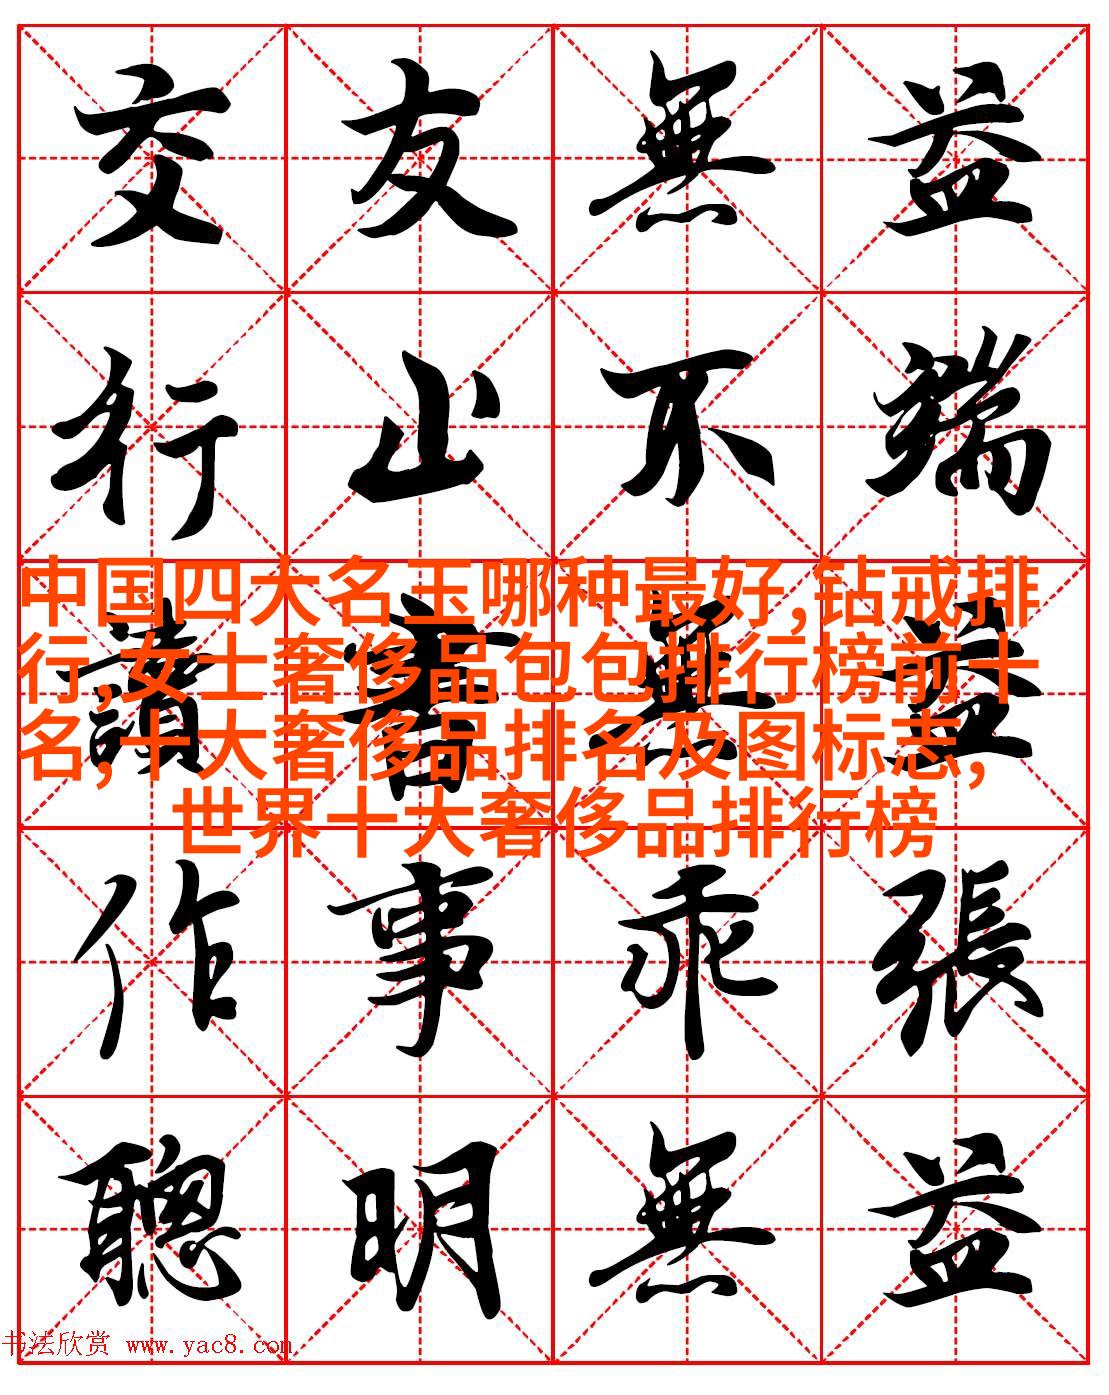 交友無益
行止不端
讀書無益
作事乖張
聰明無益
中国四大名玉哪种最好,钻戒排
行,女士奢侈品包包排行榜前十
名,十大奢侈品排名及图标志,
世界十大奢侈品排行榜
书法欣赏 www.yac8.com